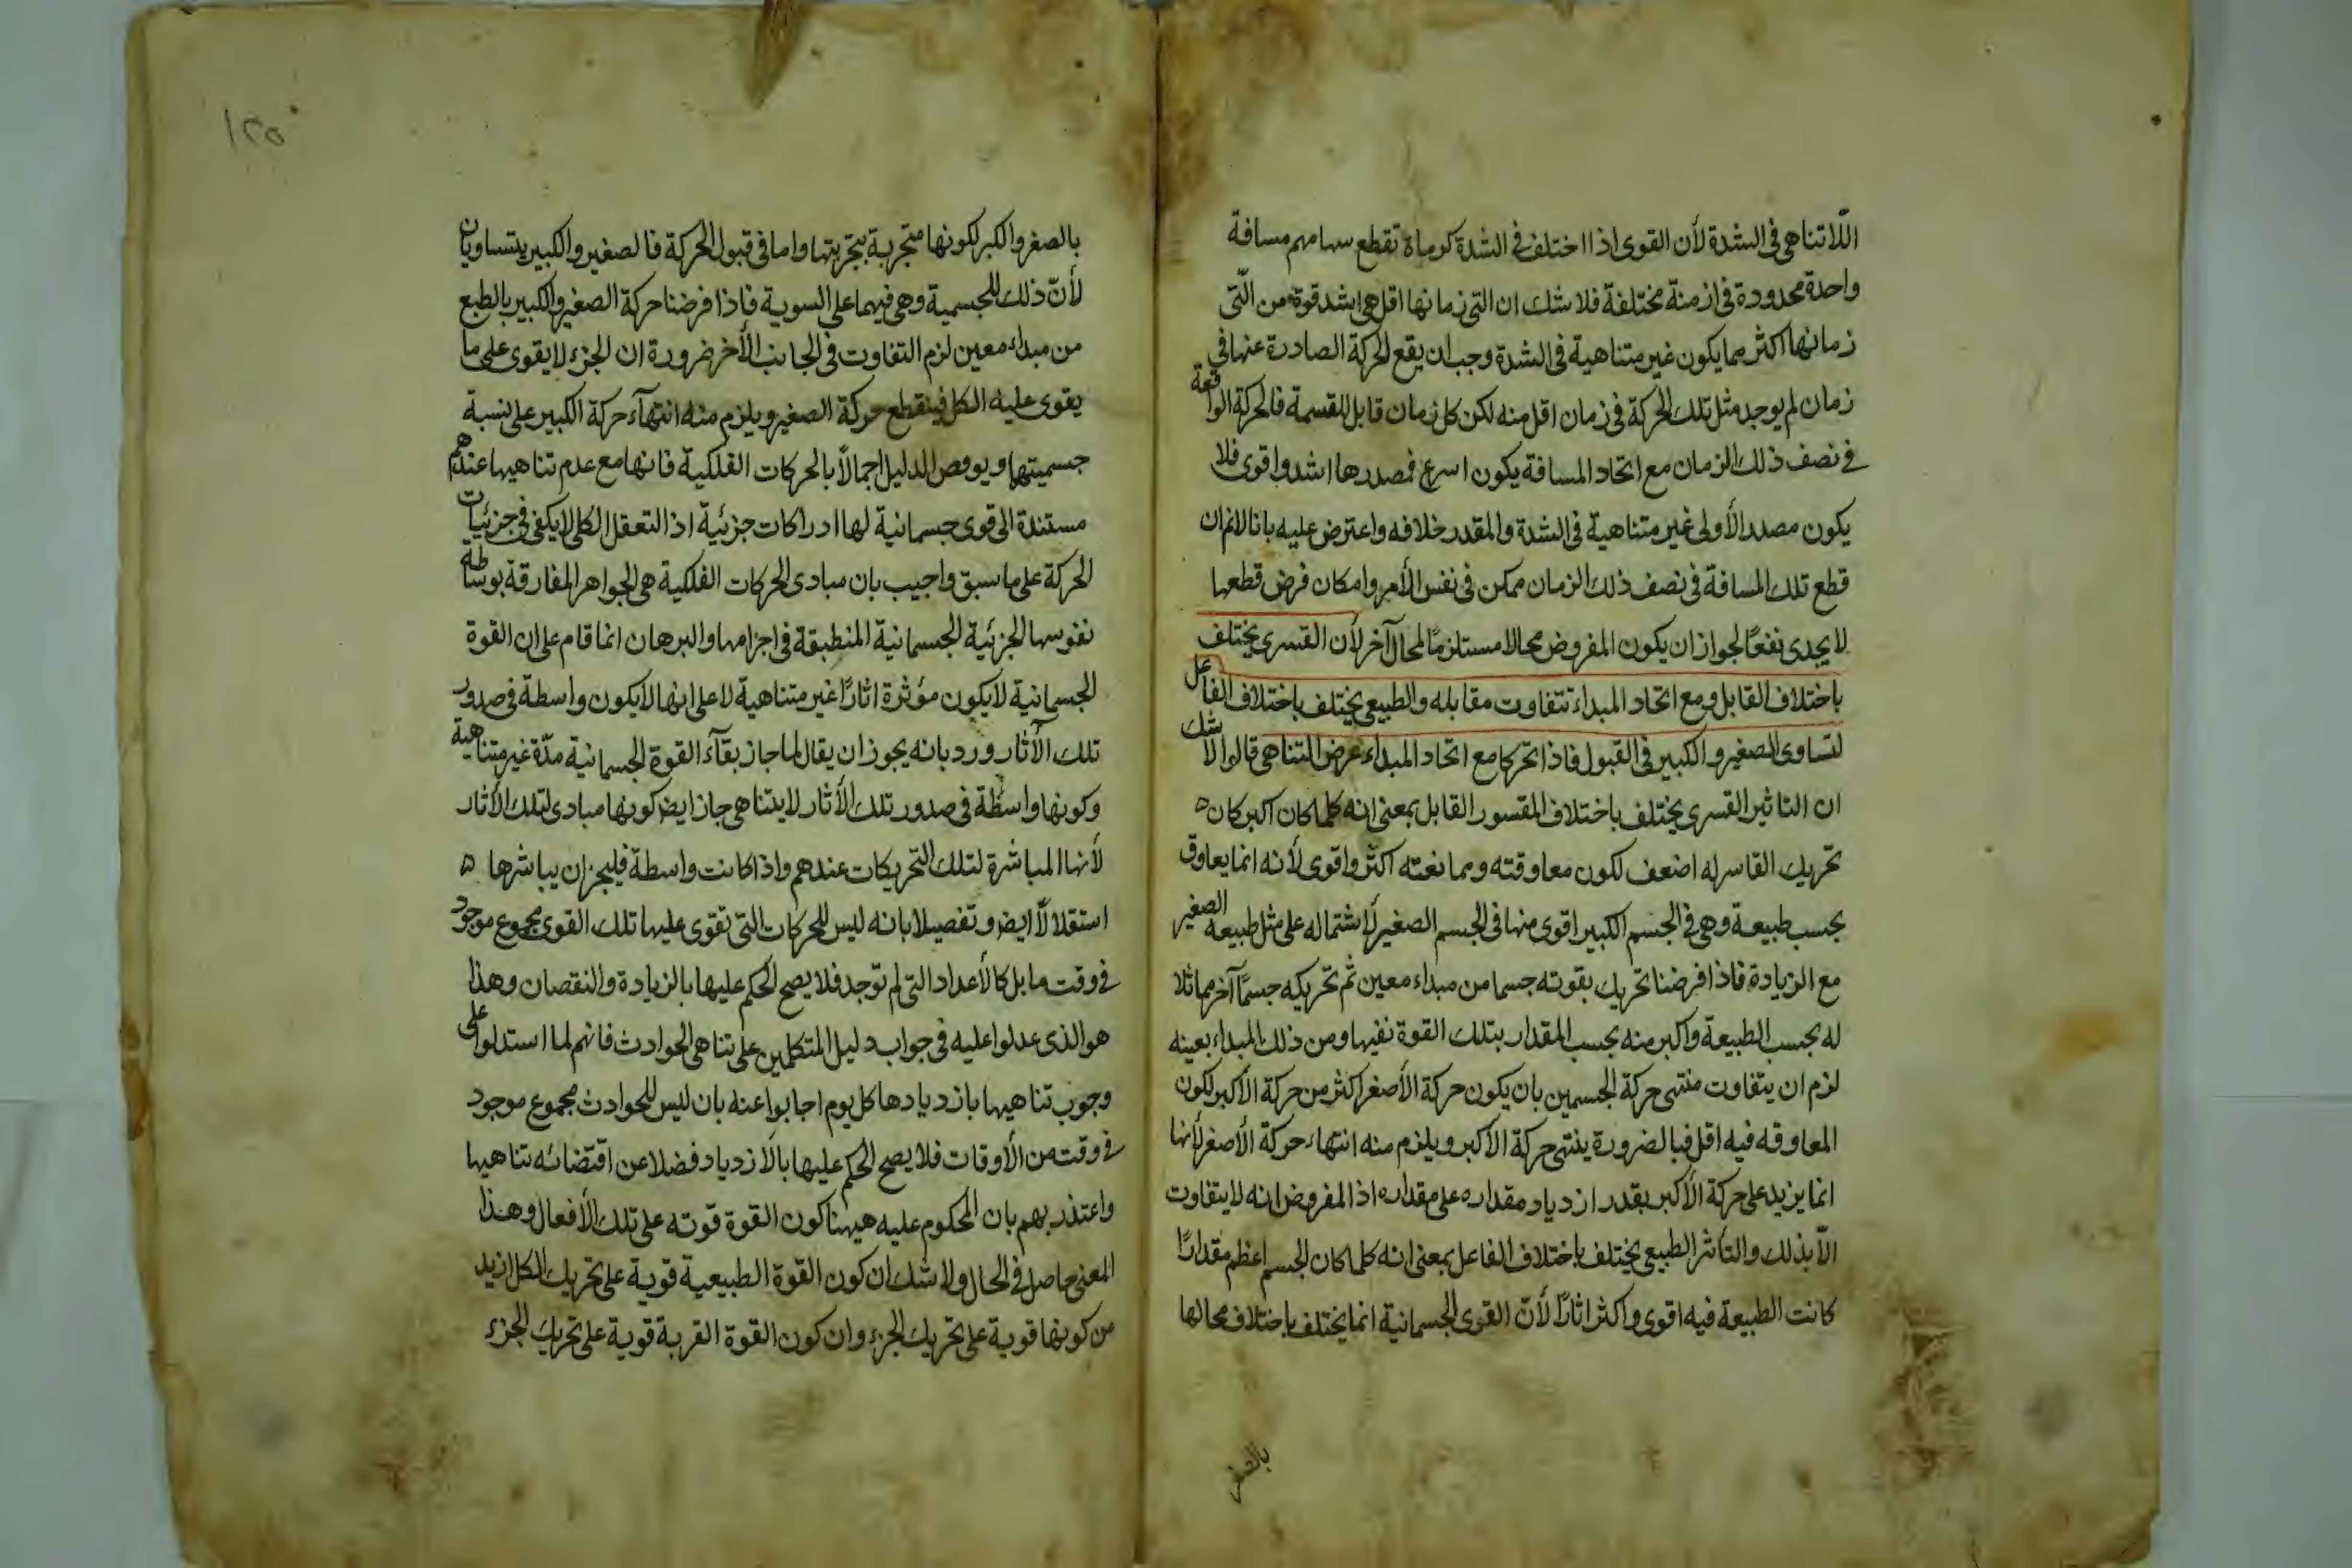 اللّاتناهى فى الشدة لأن القوى اذا اختلف فى الشدة كرماة تقطع سهامهم مسافة
واحدة محدودة فى ازمنة مختلفة فلا شك ان التى زمانها اقل هى اشد قوة من الّتى
زمانها اكثر مما يكون غير متناهية فى الشدة وجب ان يقع الحركة الصادرة عنها فى
زمان لم يوجد مثل تلك الحركة فى زمان اقل منه لكن كل زمان قابل للقسمة فالحركة الواقعة
فى نصف ذلك الزمان مع اتحاد المسافة يكون اسرع فمصدرها اشد واقوى فلا
يكون مصدر الأولى غير متناهية فى الشدة والمقدر خلافه واعترض عليه بانا لانم ان
قطع تلك المسافة فى نصف ذلك الزمان ممكن فى نفس الأمر وامكان فرض قطعها
لا يجدى نفعًا لجواز ان يكون المفروض محالا مستلزمًا لمحال آخر لأن القسرى يختلف
باختلاف القابل ومع اتحاد المبداء تتفاوت مقابله والطبيعى يختلف باختلاف الفاعل
لتساوى الصغير والكبير فى القبول فاذا تحركا مع اتحاد المبداء عرض التناهى قالوا لا شك
ان التاثير القسرى يختلف باختلاف المقسور القابل بمعنى انه كلما كان اكبر كان
تحريك القاسر له اضعف لكون معاوقته وممانعته اكثر واقوى لأنه انما يعاوق
بحسب طبيعة وهى فى الجسم الكبير اقوى منها فى الجسم الصغير لإشتماله على مثل طبيعة الصغير
مع الزيادة فاذا فرضنا تحريك بقوته جسما من مبداء معين ثم تحريكه جسمًا آخر مماثلا
له بحسب الطبيعة واكبر منه بحسب المقدار بتلك القوة نفيها ومن ذلك المبداء بعينه
لزم ان يتفاوت منتهى حركة الجسمين بان يكون حركة الأصغر اكثر من حركة الأكبر لكون
المعاوقه فيه اقل فبالضرورة ينتهى حركة الأكبر ويلزم منه انتهاء حركة الأصغر لأنها
انما يزيد على حركة الأكبر بقدر ازدياد مقداره على مقداره اذ المفروض انه لا يتفاوت
الّا بذلك والتأثير الطبيعى يختلف باختلاف الفاعل بمعنى انه كلما كان الجسم اعظم مقدارًا
كانت الطبيعة فيه اقوى واكثر اثارًا لأنّ القوى الجسمانية انما يختلف باختلاف محالها
بالصغر
١٢٥
بالصغر والكبر لكونها متجزية بتجزيتها واما فى قبول الحركة فالصغير والكبير يتساويان
لأنّ ذلك للجسمية وهى فيهما على السوية فاذا فرضنا حركة الصغير والكبير بالطبع
من مبداء معين لزم التفاوت فى الجانب الأخر ضرورة ان الجزء لا يقوى على ما
يقوى عليه الكل فينقطع حركة الصغير ويلزم منه انتهآء حركة الكبير على نسبة
جسميتها ويوقض الدليل اجمالاً بالحركات الفلكية فانها مع عدم تناهيها عندهم
مستندة الى قوى جسمانية لها ادراكات جزئية اذ التعقل الكلى لا يكفى فى جزئيات
الحركة على ما سبق واجيب بان مبادى الحركات الفلكية هى الجواهر المفارقة بوساطة
نفوسها الجزئية الجسمانية المنطبقة فى اجرامها والبرهان انما قام على ان القوة
الجسمانية لا يكون مؤثرة اثارًا غير متناهية لا على انها لا يكون واسطة فى صدور
تلك الآثار ورد بانه يجوز ان يقال لما جاز بقآء القوة الجسمانية مدّة غير متناهية
وكونها واسطة فى صدور تلك الأثار لا يتناهى جاز ايض كونها مبادى لتلك الأثار
لأنها المباشرة لتلك التحريكات عندهم واذا كانت واسطة فليجز ان يباشرها
استقلالاً ايض وتفصيلا بانه ليس للحركات التى تقوى عليها تلك القوى مجموع موجود
فى وقت ما بل كالأعداد التى لم توجد فلا يصح الحكم عليها بالزيادة والنقصان وهذا
هو الذى عدلوا عليه فى جواب دليل المتكلمين على تناهى الحوادث فانهم لما استدلوا على
وجوب تناهيها بازديادها كل يوم اجابوا عنه بان ليس للحوادث مجموع موجود
فى وقت من الأوقات فلا يصح الحكم عليها بالازدياد فضلا عن اقتضائه تناهيها
واعتذر بهم بان المحكوم عليه هيهنا كون القوة قوته على تلك الأفعال وهذا
المعنى حاصل فى الحال ولا شك ان كون القوة الطبيعية قوية على تحريك الكل ازيد
من كونها قوية على تحريك الجزء وان كون القوة القربة قوية على تحريك الجزء